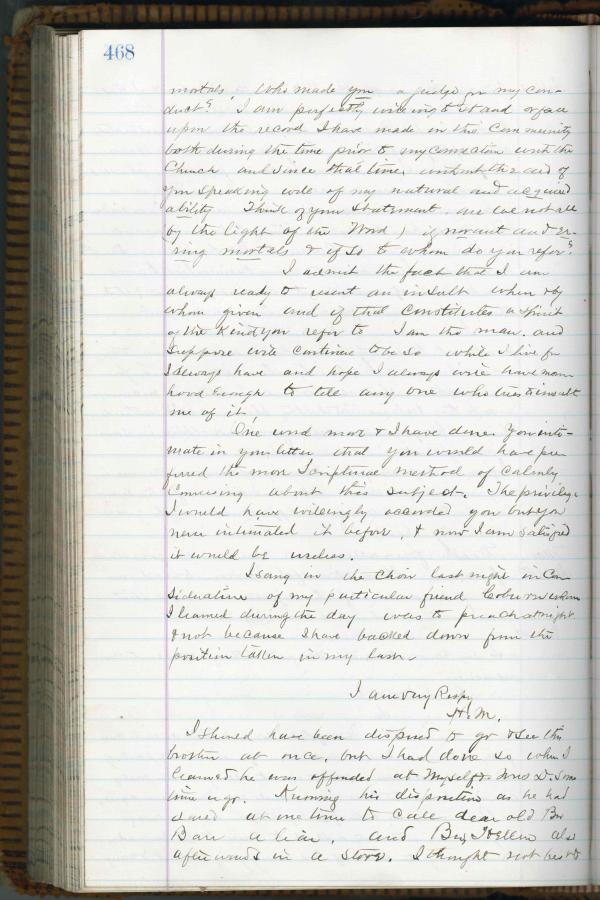 468
mortals. Who made you a judge on my con-
duct? I am perfectly willing to stand or fall
upon the record I have made in this Community
both during the time prior to my connection with the
Church and since that time, without the aid of
you speaking well of my natural and acquired
ability Think of your statement. are we not all
(by the light of the Word) ignorant and er-
ring mortals & if so to whom do you refer?
I admit the fact that I am
always ready to resent an insult when & by
whom given and if that Constitutes a spirit
of the Kind you refer to I am the man. and
Suppose will Continue to be so while I live for
I always have and hope I always will have man-
hood Enough to tell any one who tries to insult
me of it.
One word more & I have done. You inti-
mate in your letter that you would have pre-
ferred the more Scriptural method of Calmly
Conversing about this subject. The privilege
I would have willingly accorded you but you
never intimated it before, & now I am satisfied
it would be useless.
I sang in the Choir last night in Con-
sideration of my particular friend Coburn whom
I learned during the day was to preach at night
& not because I have backed down from the
position taken in my last.
I am very Respy
H. M.
I should have been disposed to go & see this
brother at once, but I had done so when I
learned he was offended at Myself & Mrs D. some
time ago. Knowing his disposition as he had
dared at one time to Call dear old Bro
a liar, and Bro also
afterwards in a Store. I thought not best to